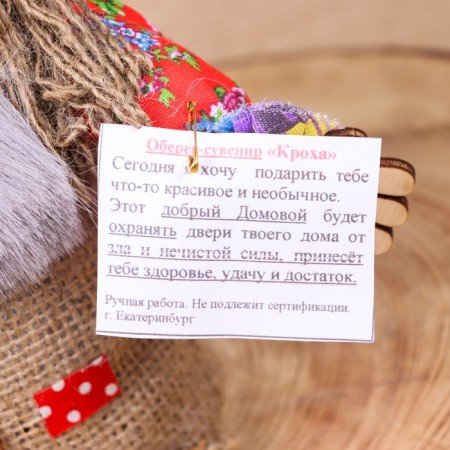 Оберег-сувенир «Кроха»
Сегодня я хочу подарить тебе
что-то красивое и необычное.
Этот добрый Домовой будет
охранять двери твоего дома от
зла и нечистой силы, принесёт
тебе здоровье, удачу и достаток.
Ручная работа. Не подлежит сертификации.
г. Екатеринбург